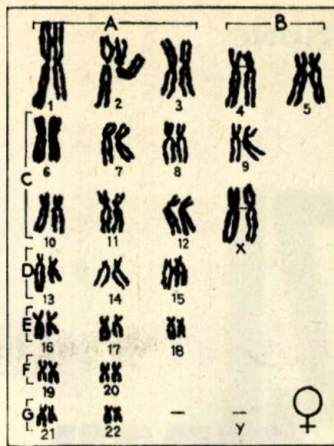 A B
1 2 3 4 5
C 6 7 8 9
10 11 12 X
D 13 14 15
E 16 17 18
F 19 20
G 21 22 Y
♀